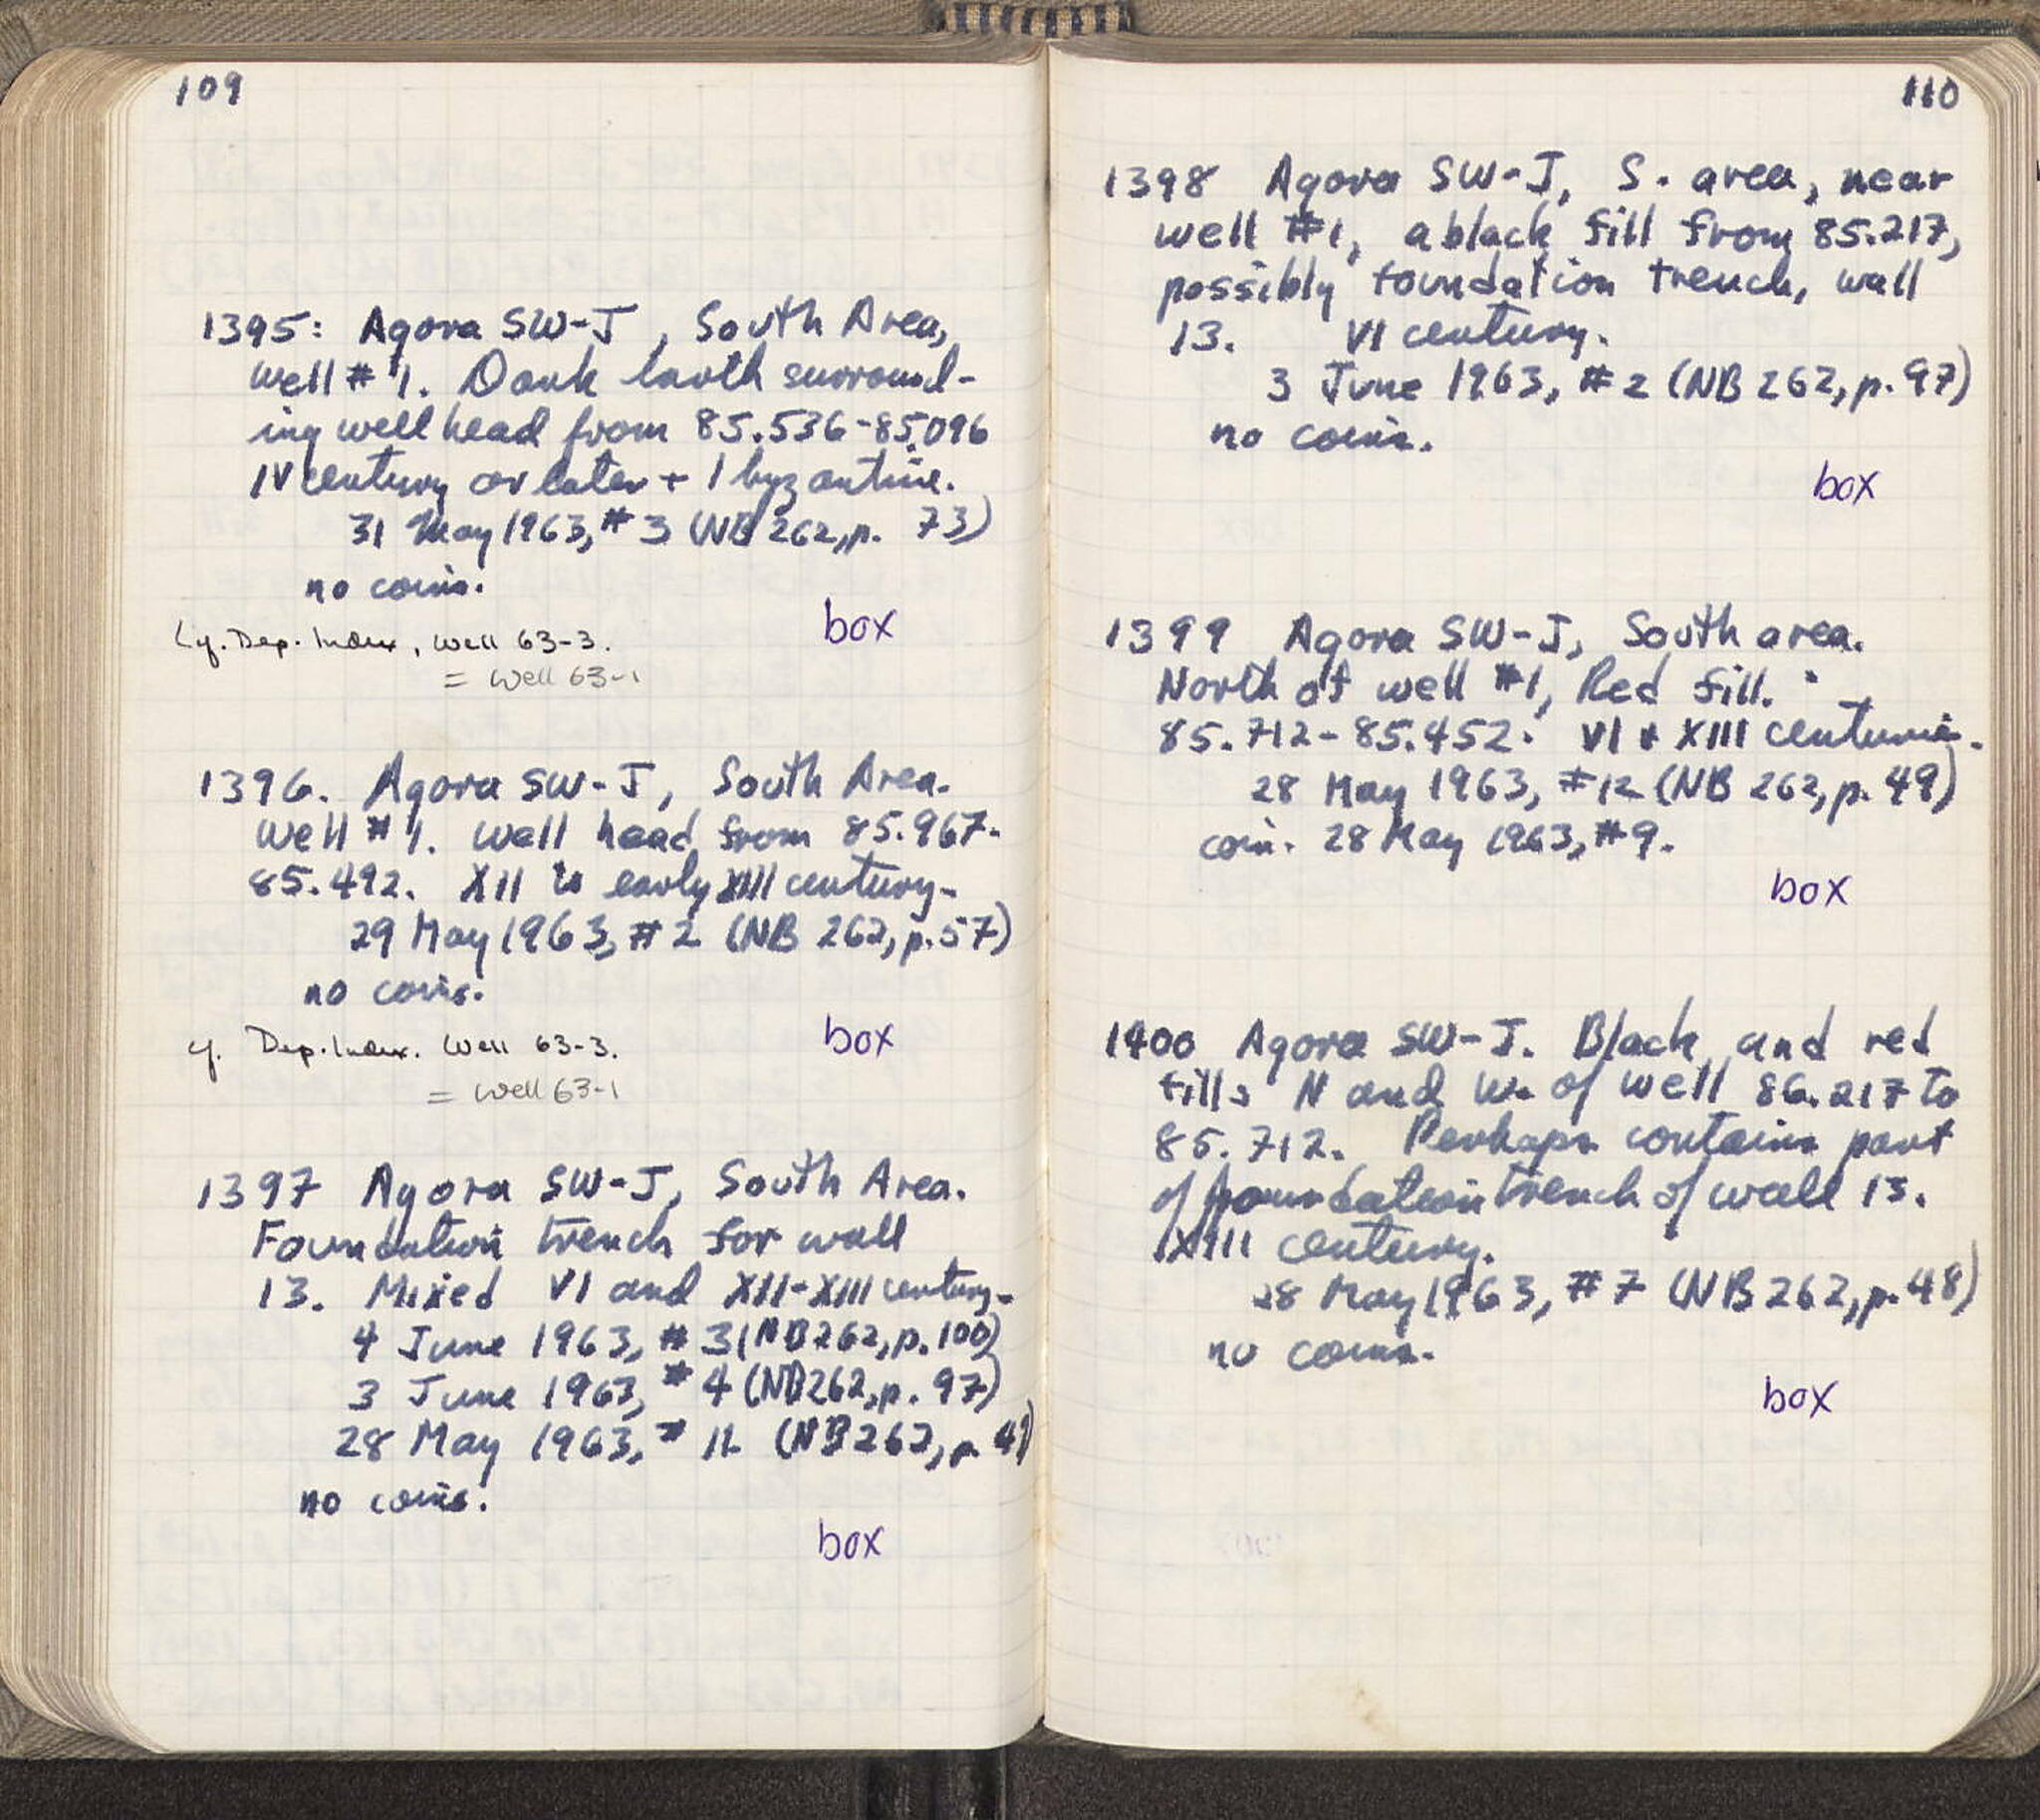 109
1395: Agora SW-J, South Area,
well #1. Dark earth surround-
ing well head from 85.536-85.096
IV century or later + 1 byzantine.
31 May 1963, #3 (NB 262, p. 73)
no coins.
box
Cf. Dep. Index, Well 63-3.
= Well 63-1
1396. Agora SW-J, South Area.
Well #1. Well head from 85.967-
85.492. XII to early XIII century.
29 May 1963, #2 (NB 262, p. 57)
no coins.
box
cf. Dep. Index. Well 63-3.
= Well 63-1
1397 Agora SW-J, South Area.
Foundation trench for wall
13. Mixed VI and XII-XIII century.
4 June 1963, #3 (NB 262, p. 100)
3 June 1963, #4 (NB 262, p. 97)
28 May 1963, # (NB 262, p. 49)
no coins.
box
110
1398 Agora SW-J, S. area, near
well #1, a black fill from 85.217,
possibly foundation trench, wall
13. VI century.
3 June 1963, #2 (NB 262, p. 97)
no coins.
box
1399 Agora SW-J, South area.
North of well #1, Red fill.
85.712-85.452. VI + XIII centuries.
28 May 1963, #12 (NB 262, p. 49)
coin. 28 May 1963, #9.
box
1400 Agora SW-J. Black and red
fills N and W. of well 86.217 to
85.712. Perhaps contains part
of foundation trench of wall 13.
XIII century.
28 May 1963, #7 (NB 262, p. 48)
no coins.
box